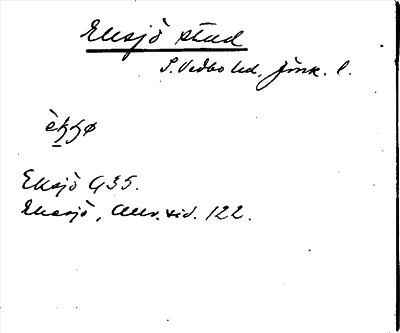 Eksjö stad
S. Vedbo hd, Jönk. l.
Eksjö G35.
Eksjö, Allv. sid. 122.